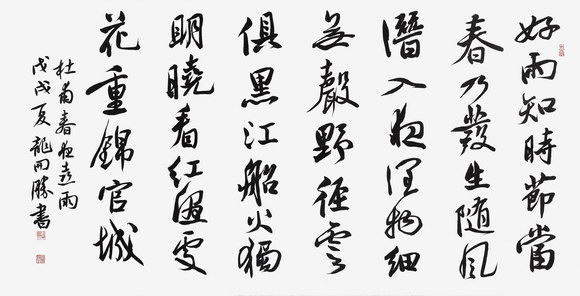 好雨知時節當
春乃發生隨風
潛入夜潤物細
無聲野徑雲
俱黑江船火獨
明曉看紅濕處
花重錦官城
杜甫春夜喜雨
戊戌夏龍開勝書